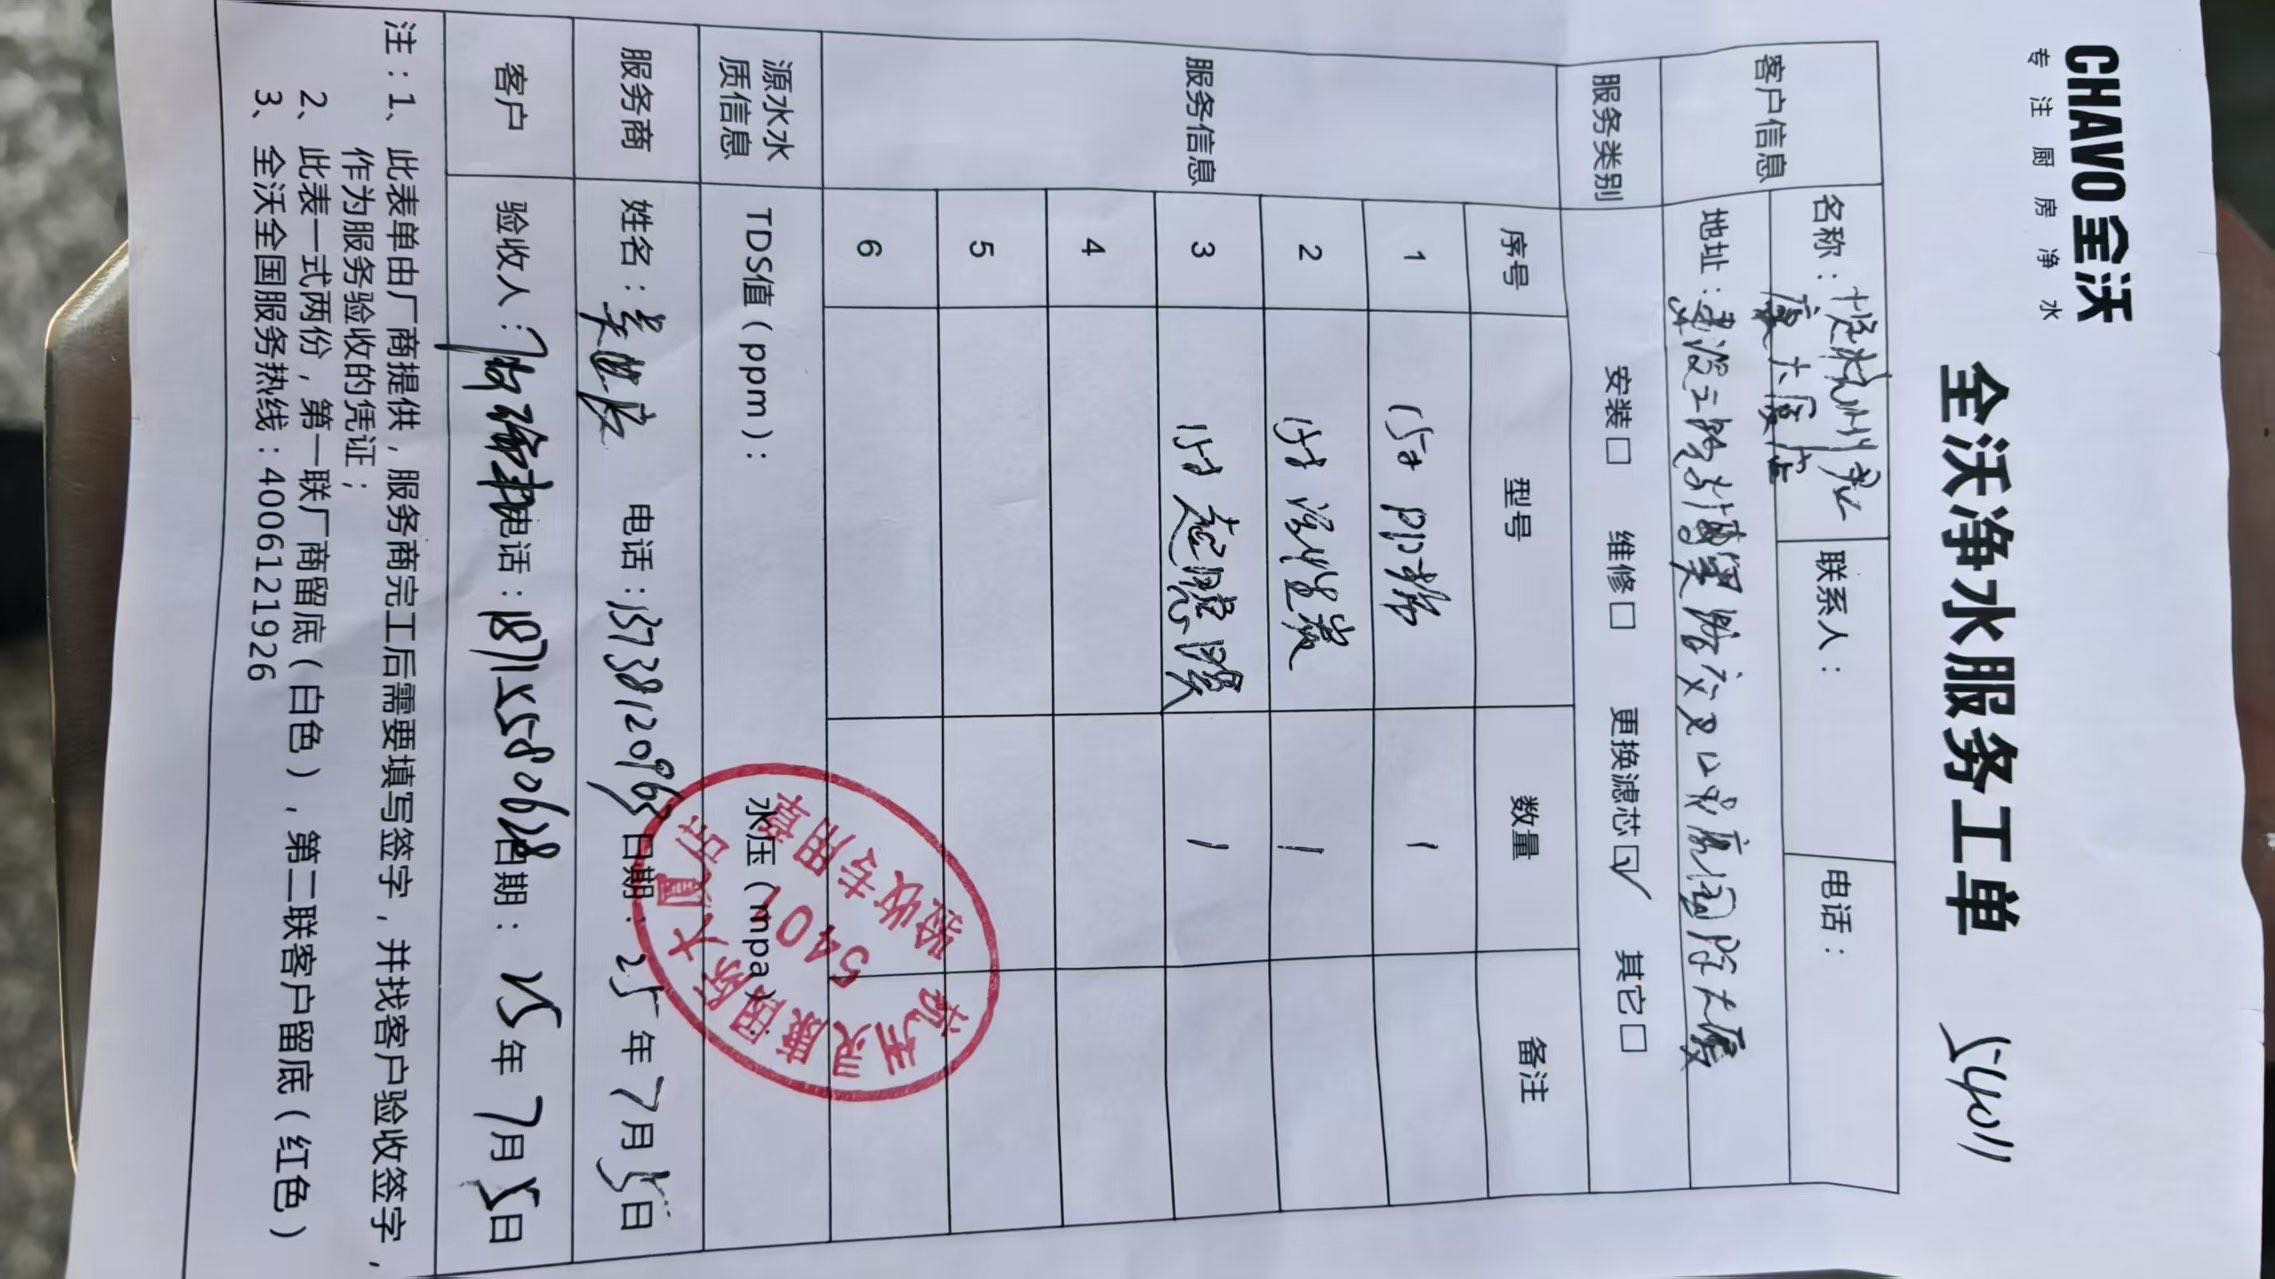 CHAVO 全沃
专注厨房净水
全沃净水服务工单 54011
客户信息 名称: 杭州 联系人: 电话:
康大厦店
地址: 路交叉口 康国际大厦
服务类别 安装□ 维修□ 更换滤芯☑ 其它□
服务信息 序号 型号 数量 备注
1 15寸 PP棉 1
2 15寸 活性炭 1
3 15寸 超滤膜 1
4
5
6
源水水质信息 TDS值(ppm): 水压(mpa):
服务商 姓名: 电话:15738120965 日期:25年7月5日
客户 验收人: 电话:18715580628 日期:25年7月5日
注:1、此表单由厂商提供,服务商完工后需要填写签字,并找客户验收签字,
作为服务验收的凭证;
2、此表一式两份,第一联厂商留底(白色),第二联客户留底(红色)
3、全沃全国服务热线:4006121926
康国际大厦店
5401
验收专用章